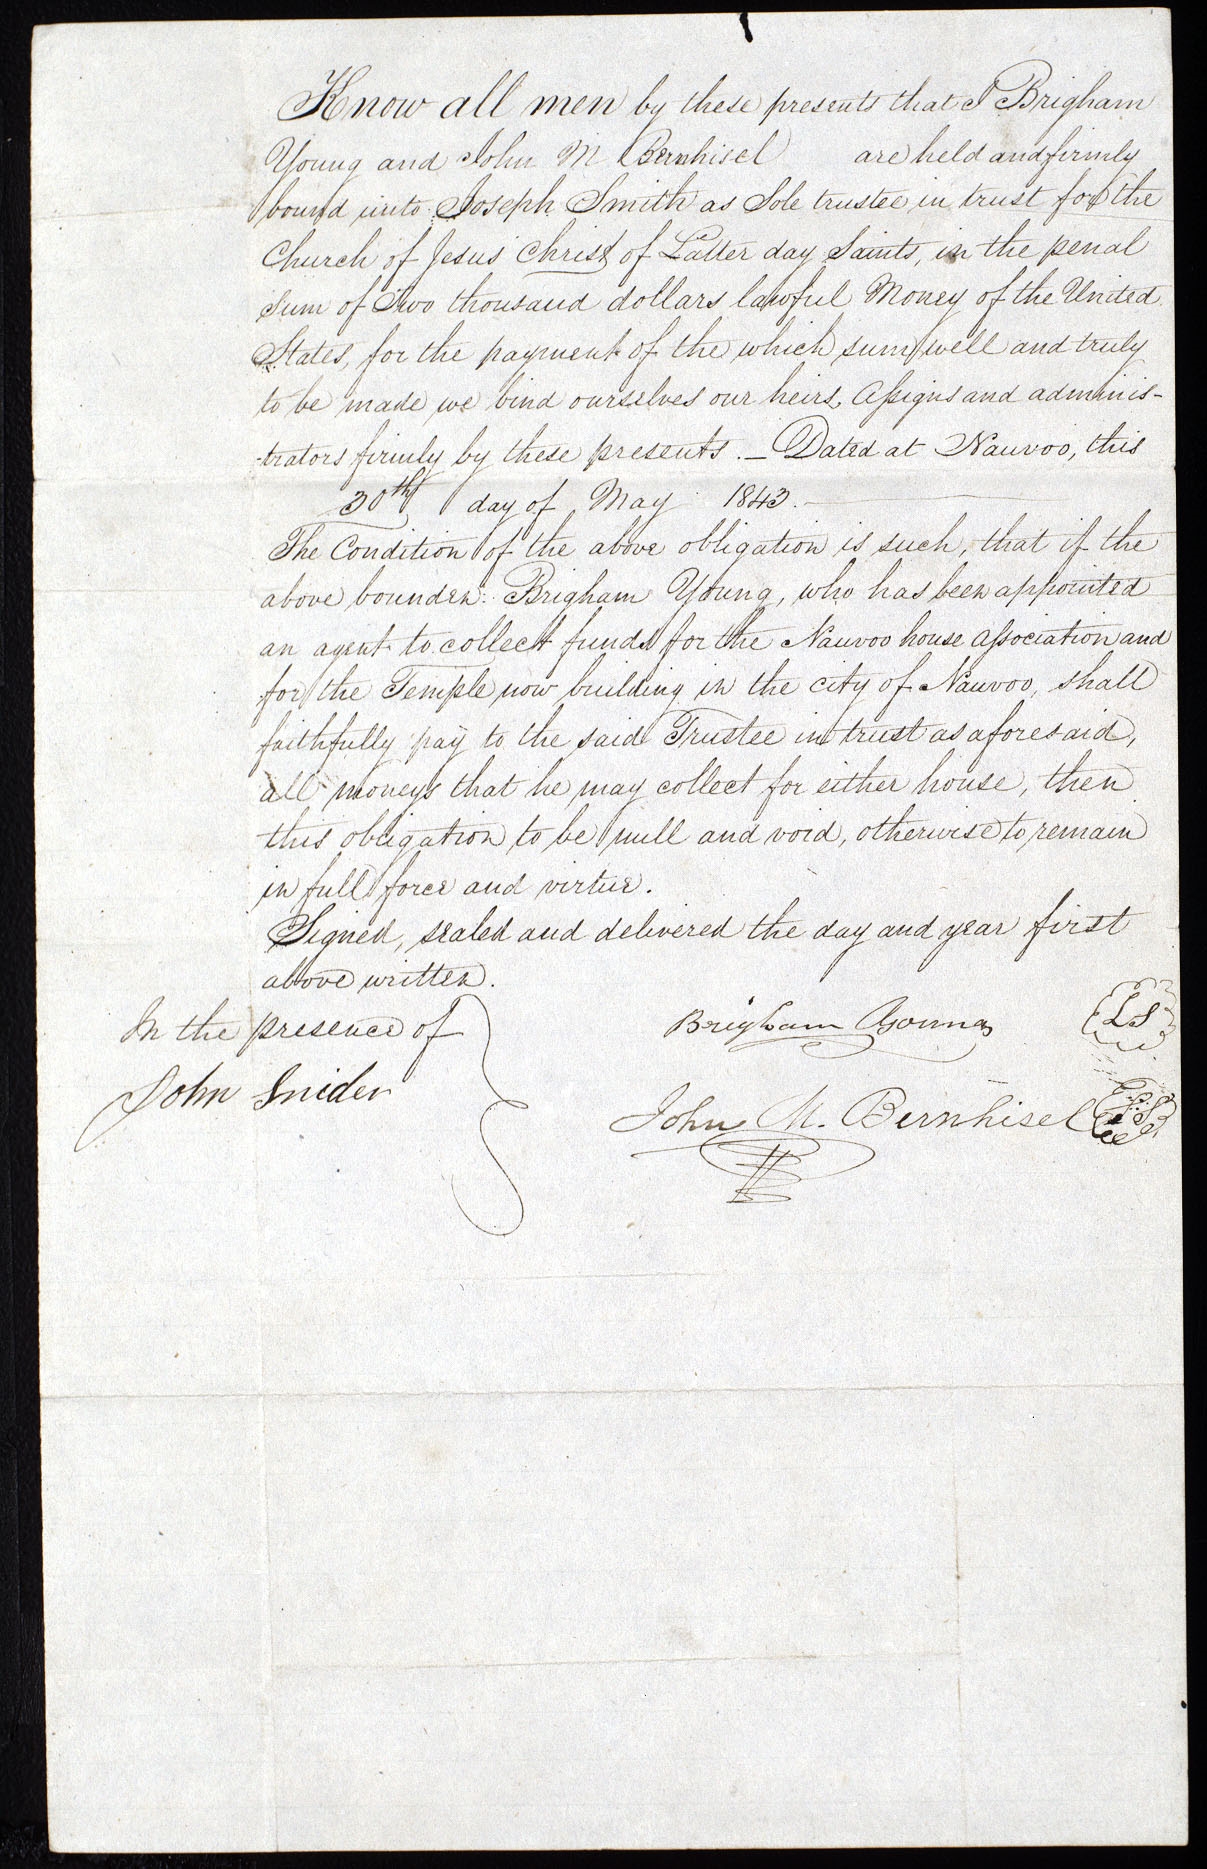 Know all men by these presents that I Brigham
Young and John M Bernhisel are held and firmly
bound unto Joseph Smith as Sole trustee in trust for the
Church of Jesus Christ of Latter day Saints, in the penal
Sum of Two thousand dollars lawful Money of the United
States, for the payment of the which sum well and truly
to be made we bind ourselves our heirs, Assigns and adminis-
trators firmly by these presents. — Dated at Nauvoo, this
30th day of May 1843. —
The Condition of the above obligation is such, that if the
above bounden Brigham Young, who has been appointed
an agent to collect funds for the Nauvoo house Association and
for the Temple now building in the city of Nauvoo, shall
faithfully pay to the said Trustee in trust as aforesaid,
all moneys that he may collect for either house, then
this obligation to be null and void, otherwise to remain
in full force and virtue.
Signed, sealed and delivered the day and year first
above written.
In the presence of
John Snider
Brigham Young LS
John M. Bernhisel LS